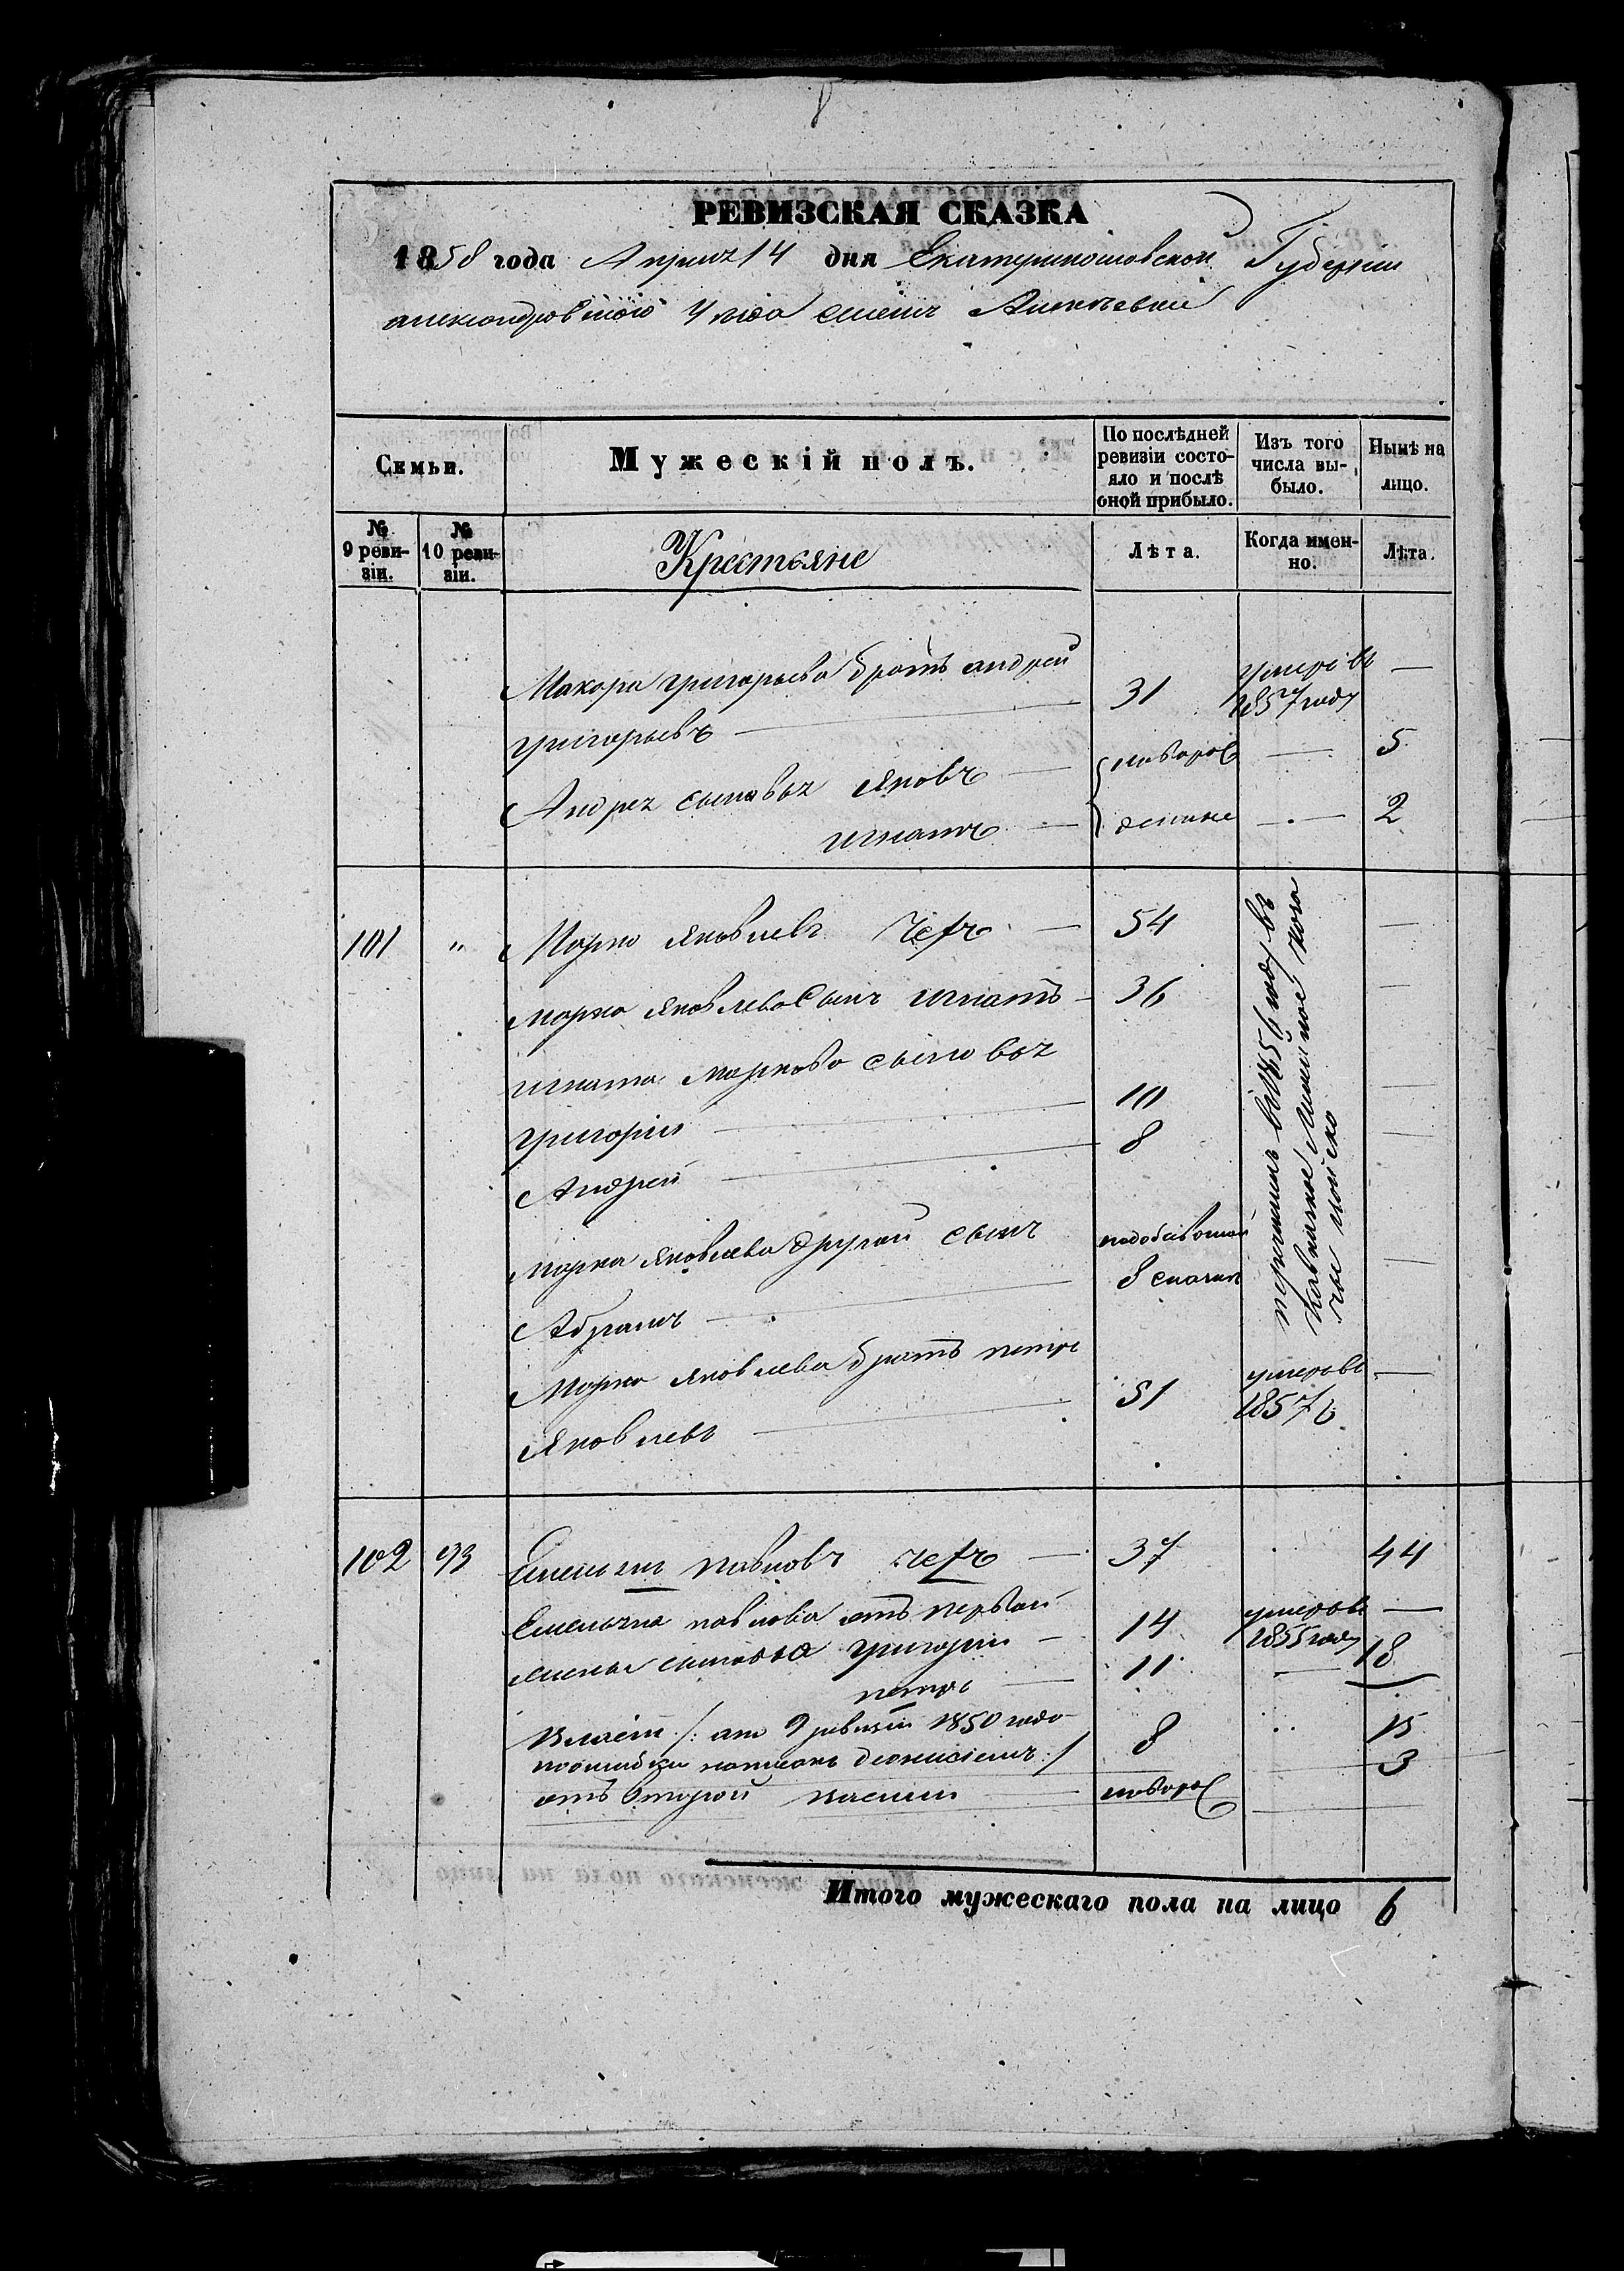 РЕВИЗСКАЯ СКАЗКА
1858 года Априля 14 дня Екатеринославской Губернии
александровского Уезда
Семьи.
Мужескій полъ.
По послѣдней ревизіи состояло и послѣ оной прибыло.
Изъ того числа выбыло.
Нынѣ на лицо.
№ 9 ревизіи.
№ 10 ревизіи.
Крестьяне
Лѣта.
Когда именно.
Лѣта.
Макара григорьева братъ андрей
григорьевъ — 31 умеръ въ 1857 году —
Андрея сыновья яковъ — новорож — 5
игнатъ — денные — 2
101 " Марко яковлевъ — 54 —
марка яковлева Сынъ игнатъ — 36 —
игната маркова сыновья
григорий — 10 —
Андрей — 8 —
марка яковлева другой сынъ
Абрамъ —
8
въ 1856 году въ
войско
Марка яковлева братъ петръ
яковлевъ — 51 умеръ въ 1857 —
102 93 Емельян павловъ — 37 44
Емельяна павлова отъ первой
жены сыновья григорий — 14 умеръ въ 1855 году —
петръ — 11 — 18
/: 9 ревизии 1850 года 8 15
написанъ деонисіемъ :/
отъ второй — новорож — 3
Итого мужескаго пола на лицо 6